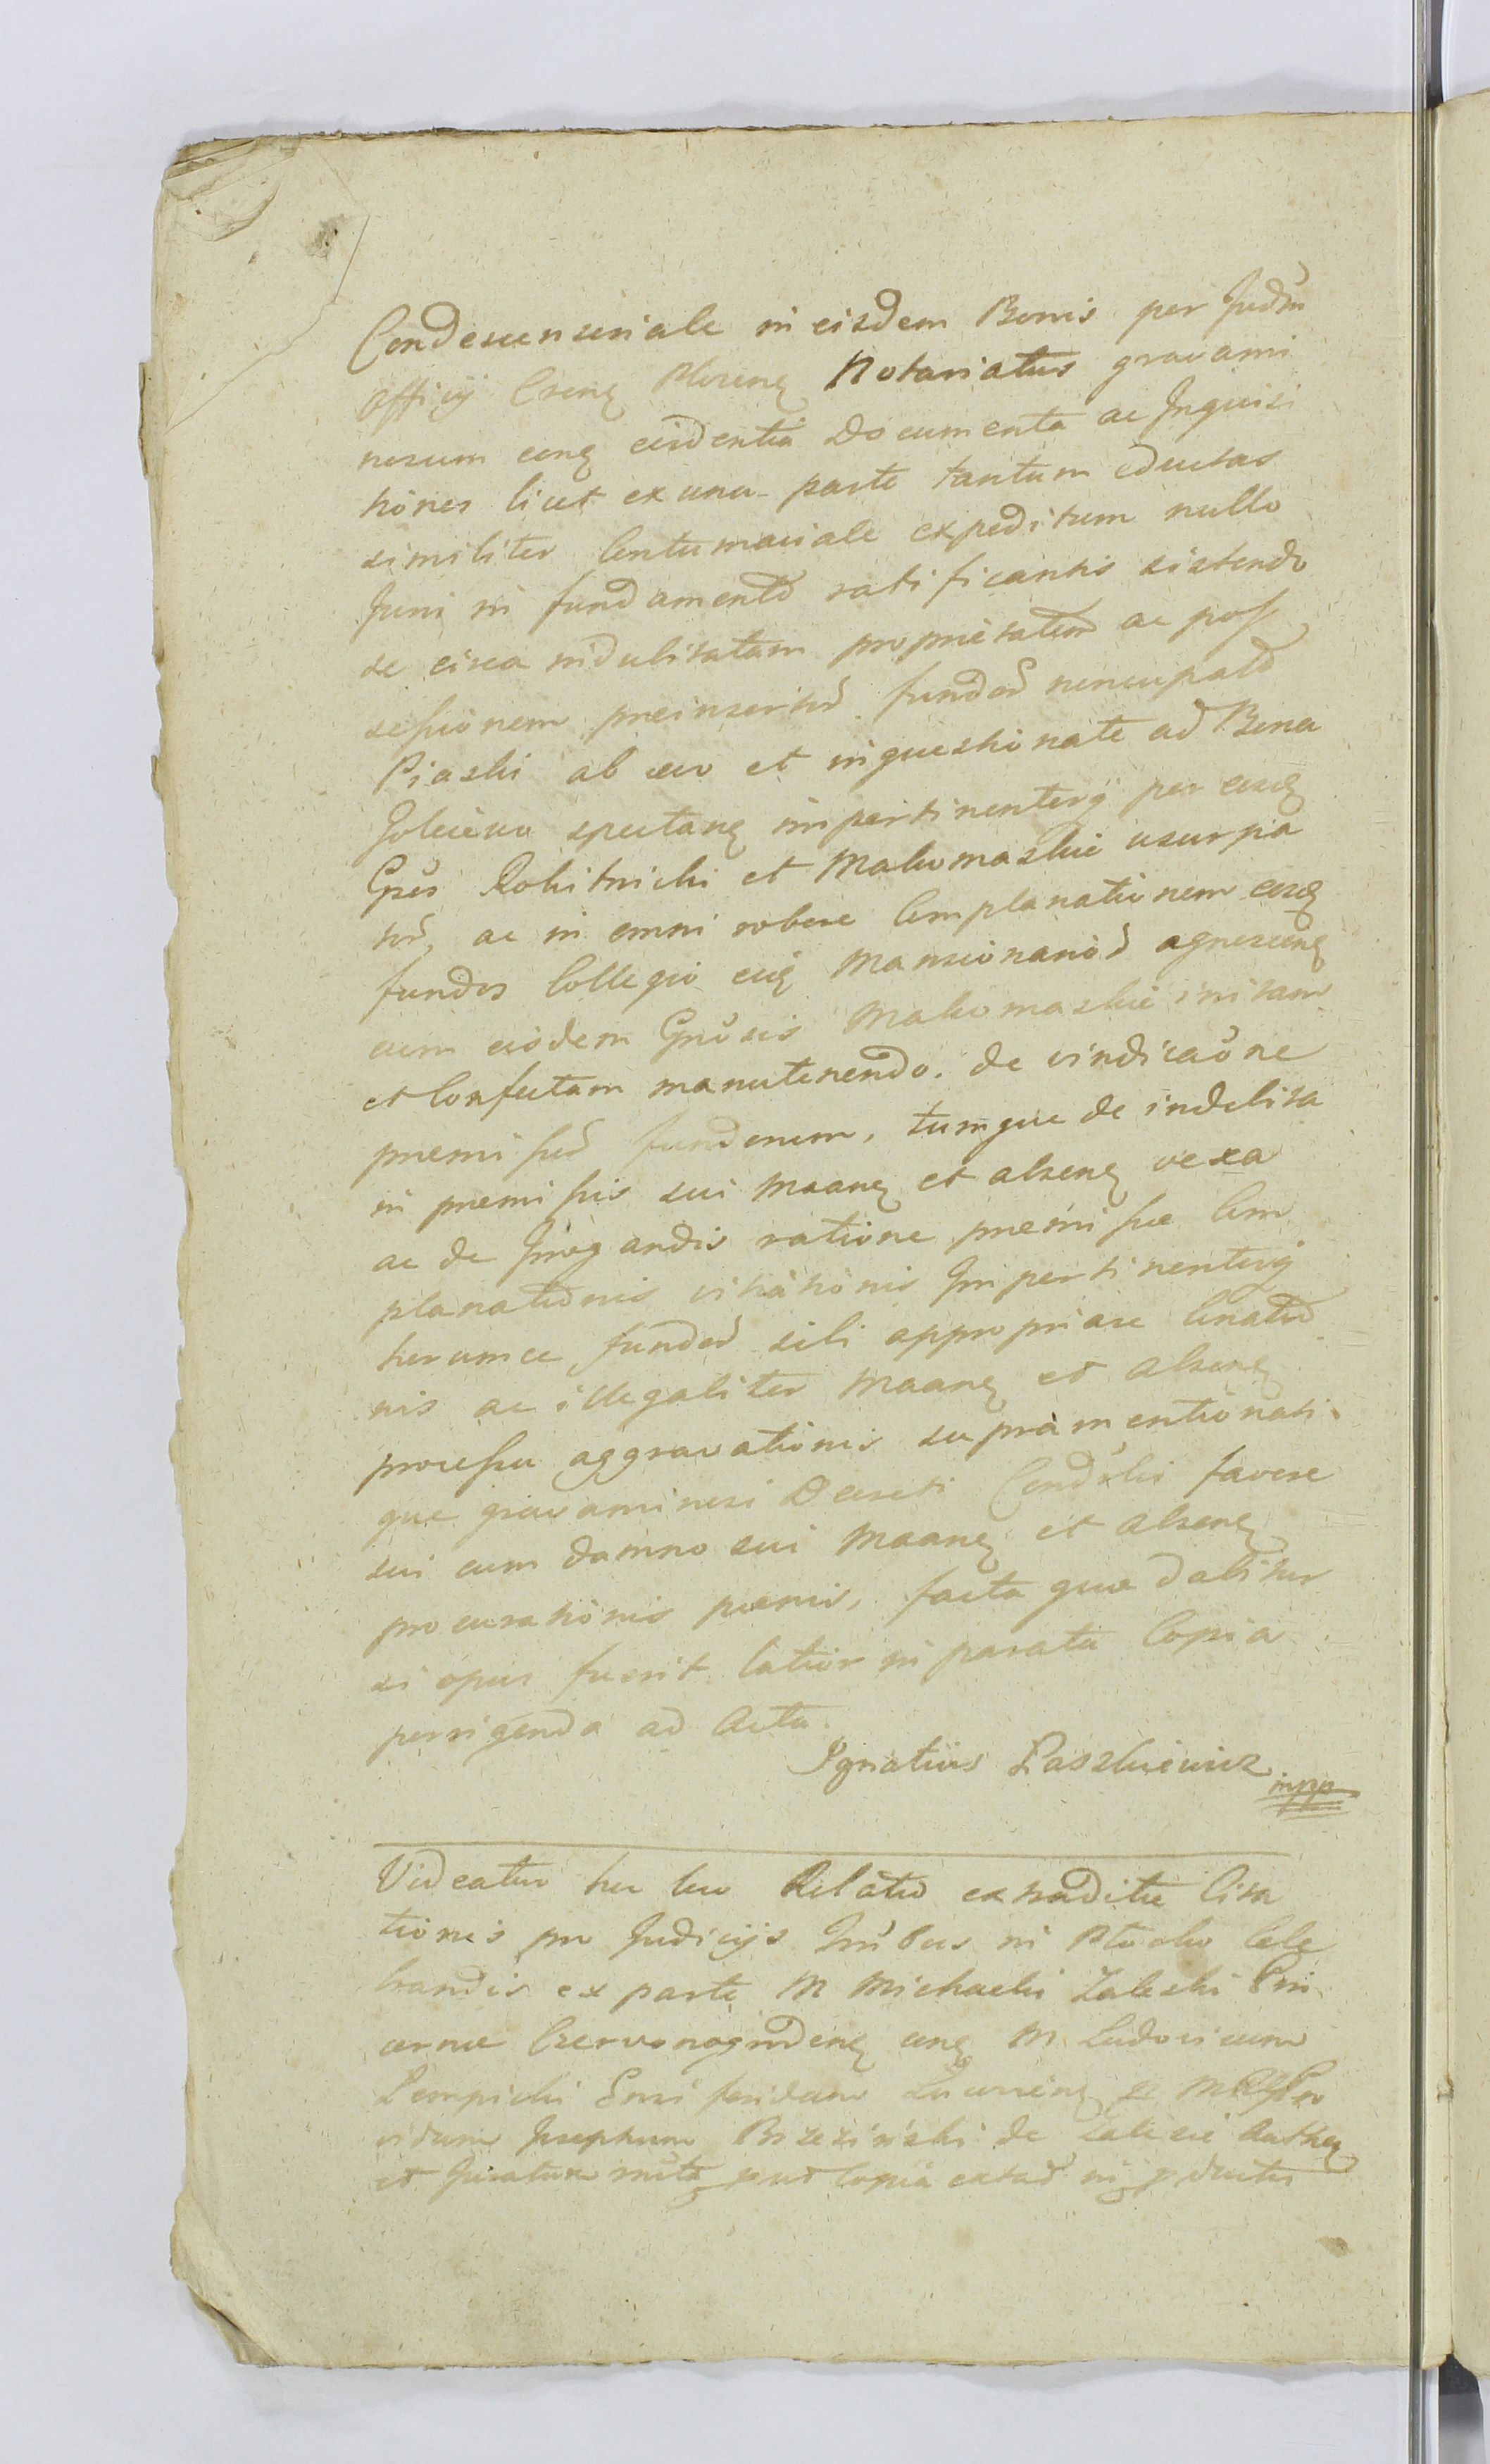 Condescensiriale in eisdem Bonis per Judm
Officij Crens Plocens Notariatus gravami
nosum cons evidentia Documenta ac Inquisi
tiones licet ex una parte tantum eductas
similiter Contumaciale expeditum nullo
Juri in fundamento ratificantis sistendo
se circa indubitatam proprietatem ac pos
sessionem preinsertor fundor nuncupator
Piaski ab evo et inquestionate ad Bona
spectans impertinenter per eosd
Gsos Rokitnicki et Makomaskie usurpa
tor, ac in omni robore Complanationem eosd
fundos Collegio Mansionarior agnoscens
cum eisdem Gnosis Makomaskie initam
et Confectam manutenendo. de vindicaone
premissor fundorum, tumque de indebita
in premissis sui Maans et absens vexa
ac de Irrogandis ratione premissae Com
planationis vitiationis Impertinenterq
horumce fundor sibi appropriare conatio
nis ac illegaliter Maans et absens
processu aggravationis supramentionati
que gravaminosi Decreti Condslis favore
sui cum damno sui Maans et absens
procurationis poenis, facta quae dabitur
si opus fuerit latior in parata Copia
porrigenda ad Acta.
Ignatius Paszkiewicz mpp
Videatur hic loco Relatio extraditae Cita
tionis pro Judicijs Trribus in Plocko Cele
brandis ex parte M Michaelis Zaleski Pin
cernae Czerwonogrodens cons M Ludovicum
Lempicki Ensiferidam et
vidum Josephum Brzezinski de Zalesie
et copia extad in